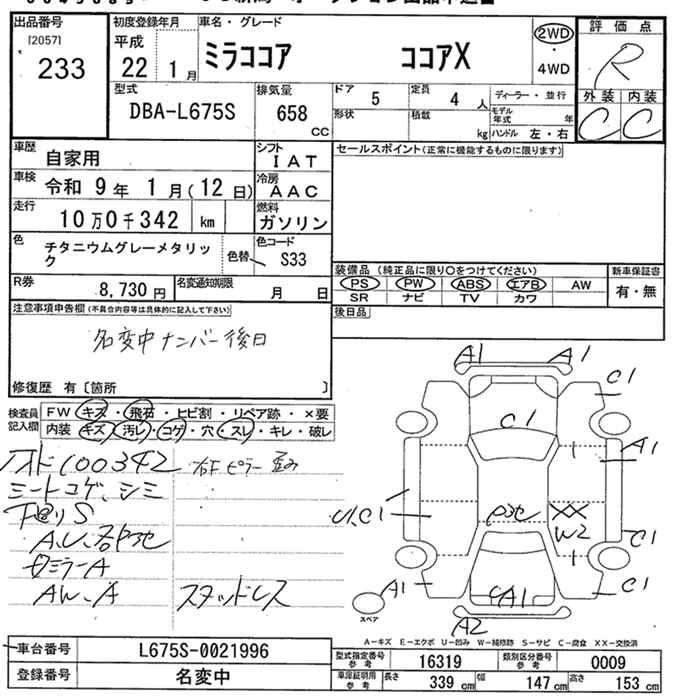 出品番号
[2057]
233
初度登録年月
平成
22 1月
車名・グレード
ミラココア ココアX
2WD
・
4WD
評価点
R
外装 内装
C C
型式
DBA-L675S
排気量
658
CC
ドア
5
定員
4人
ディーラー・並行
形状
積載
kg
モデル年式 年
ハンドル 左・右
車歴
自家用
シフト
IAT
セールスポイント(正常に機能するものに限ります)
車検
令和 9年 1月(12日)
冷房
AAC
走行
10万0千342 km
燃料
ガソリン
色
チタニウムグレーメタリック
色替
色コード
S33
R券
8,730円
名変通知期限
月 日
装備品(純正品に限り○をつけてください)
PS PW ABS エアB AW
SR ナビ TV カワ
新車保証書
有・無
注意事項申告欄(不具合内容等は具体的に記入して下さい)
名変中ナンバー後日
後日品
修復歴 有〔箇所 〕
検査員記入欄
FW キズ・飛石・ヒビ割・リペア跡・×要
内装 キズ・汚レ・コゲ・穴・スレ・キレ・破レ
100342 右Fピラー歪み
シートコゲ、シミ
下回りS
ミラーA
AW、A
スタッドレス
A1 A1
C1
C1
A1
U1.C1
XX
W2
C1
A1
C1
CA1
A2
スペア
A-キズ E-エクボ U-凹み W-補修跡 S-サビ C-腐食 XX-交換済
車台番号
L675S-0021996
登録番号
名変中
型式指定番号 参考
16319
類別区分番号 参考
0009
車庫証明用 参考
長さ 339cm
幅 147cm
高さ 153cm